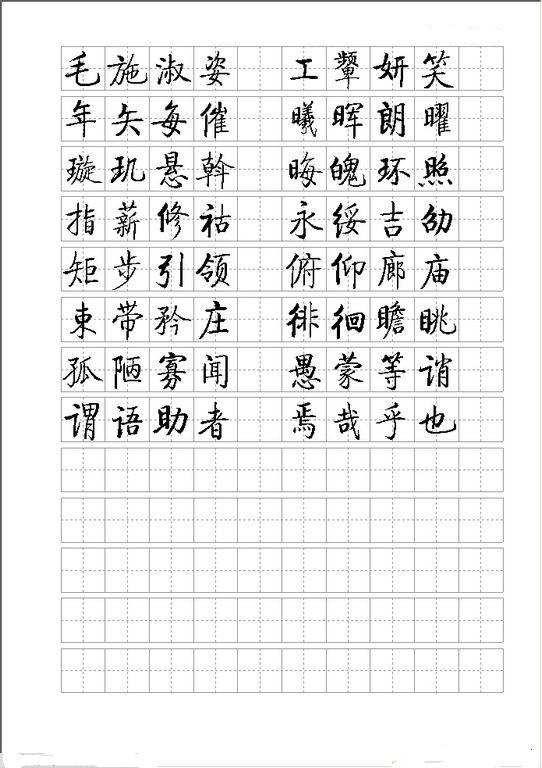 毛施淑姿 工颦妍笑
年矢每催 曦晖朗曜
璇玑悬斡 晦魄环照
指薪修祜 永绥吉劭
矩步引领 俯仰廊庙
束带矜庄 徘徊瞻眺
孤陋寡闻 愚蒙等诮
谓语助者 焉哉乎也